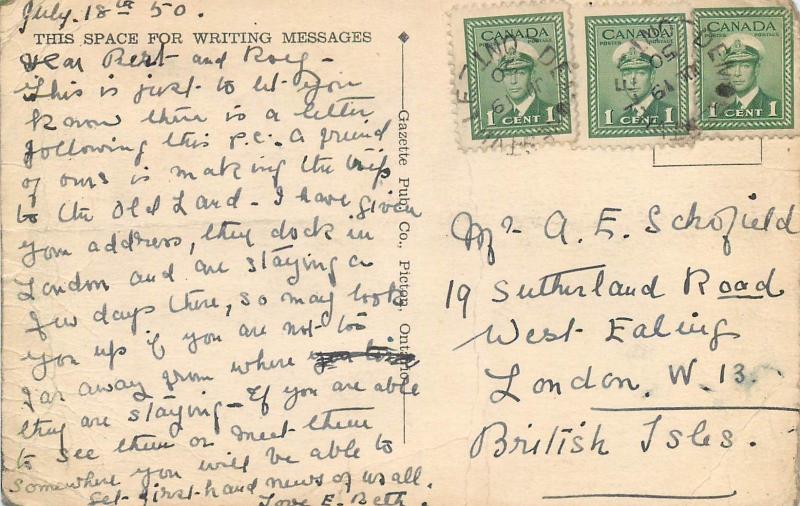 July. 18th 50.
THIS SPACE FOR WRITING MESSAGES
Dear Bert and Roey -
This is just to let you
know there is a letter
following this p.c. A friend
of ours is making the trip
to the Old Land - I have given
your address, they dock in
London and are staying a
few days there, so may look
you up if you are not too
far away from where
they are staying - If you are able
to see them or meet them
somewhere you will be able to
get first-hand news of us all.
Love E. Beth.
Gazette Pub. Co., Picton, Ontario
CANADA
POSTES POSTAGE
1 CENT 1
CANADA
POSTES POSTAGE
1 CENT 1
CANADA
POSTES POSTAGE
1 CENT 1
Mr. A. E. Schofield
19 Sutherland Road
West Ealing
London. W. 13.
British Isles.